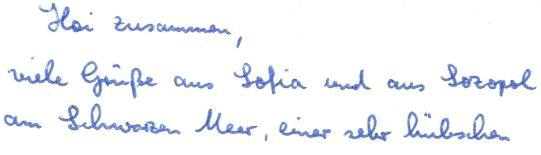 Hoi zusammen,
viele Grüße aus Sofia und aus Sozopol
am Schwarzen Meer, einer sehr hübschen